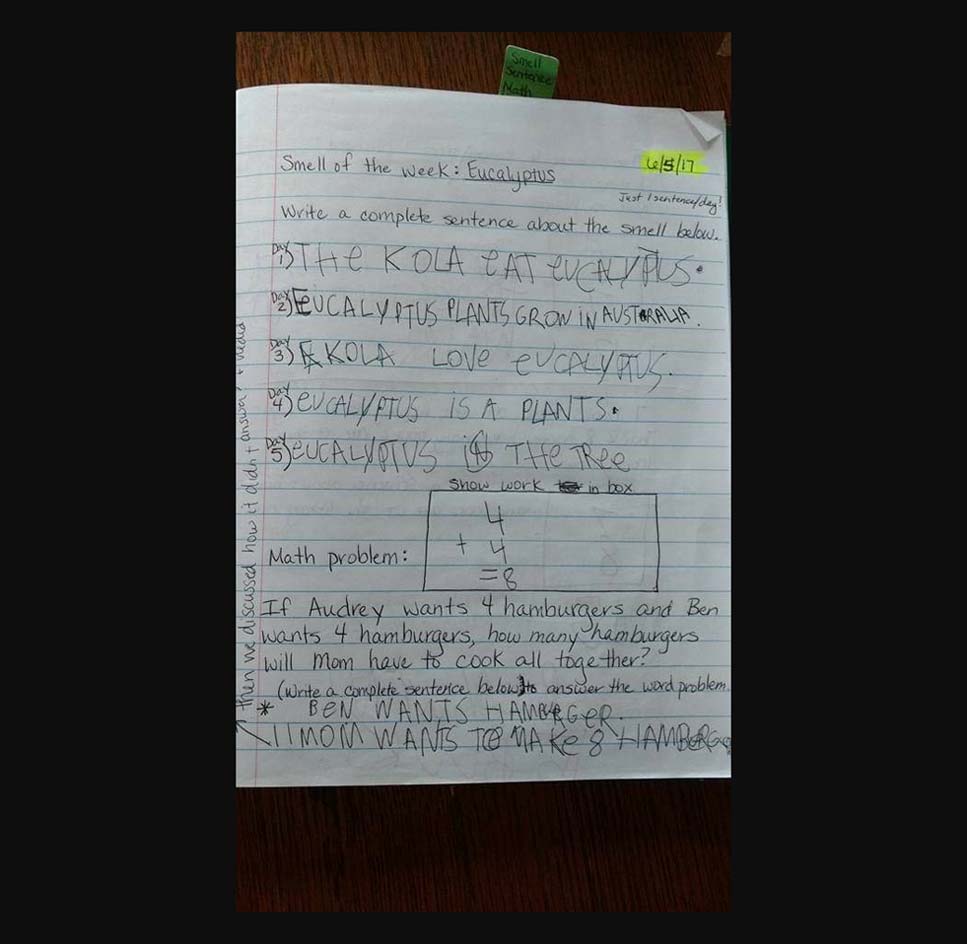 Smell
Sentence
Math
6/5/17
Smell of the week: Eucalyptus
Just 1 sentence/day!
Write a complete sentence about the smell below.
Day 1) THe KOLA eAT eUCALYPTUS.
Day 2) EUCALYPTUS PLANTS GROW iN AUSTRALIA.
Day 3) A KOLA LOVe eUCALYPTUS.
Day 4) eUCALYPTUS iS A PLANTS.
Day 5) eUCALYPTUS iA THe TRee
Show work in box
4
+ 4
Math problem:
=8
If Audrey wants 4 hamburgers and Ben
wants 4 hamburgers, how many hamburgers
will Mom have to cook all together?
(Write a complete sentence below to answer the word problem
* BeN WANTS HAMBERGeR.
MOM WANTS TO MAKe 8 HAMBeRGe
then we discussed how it didn't answer